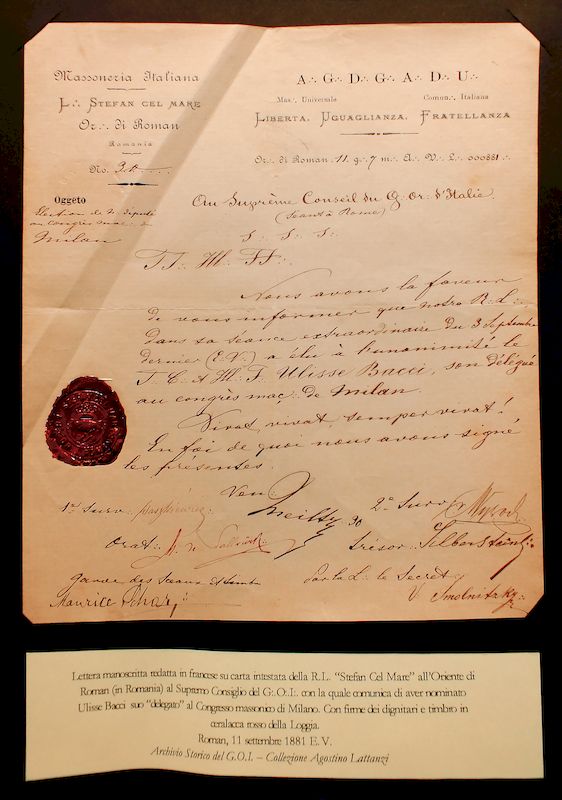 Massoneria Italiana
L∴ STEFAN CEL MARE
Or∴ di Roman
Romania
No.
Oggeto
Election de
au Congrès mac∴ de
Milan
A∴ G∴ D∴ G∴ A∴ D∴ U∴
Mas∴ Universale Comun∴ Italiana
LIBERTA, UGUAGLIANZA, FRATELLANZA
Or∴ di Roman 11 g∴ 7 m∴ A∴ V∴ L∴ 000881
Au Suprême Conseil du G∴ Or∴ d'Italie
(séant à Rome)
S∴ S∴ S∴
TT∴ Ill∴ FF∴
Nous avons la faveur
de vous informer que notre R∴ L∴
dans sa séance extraordinaire du 3 Septembre
dernier (E.V.) a élu à l'unanimité le
T∴ C∴ & Ill∴ F∴ Ulisse Bacci, son délégué
au congrès mac∴ de Milan.
Vivat, vivat, semper vivat!
En foi de quoi nous avons signé
les présentes.
Ven∴
1er Surv∴
2e Surv∴
Orat∴
Trésor∴
Garde des Sceaux et Timbre
Par la L∴ le Secret∴
Maurice
V. Smolnitzky
Lettera manoscritta redatta in francese su carta intestata della R.L. “Stefan Cel Mare” all’Oriente di
Roman (in Romania) al Supremo Consiglio del G∴O∴I∴ con la quale comunica di aver nominato
Ulisse Bacci suo “delegato” al Congresso massonico di Milano. Con firme dei dignitari e timbro in
ceralacca rosso della Loggia.
Roman, 11 settembre 1881 E.V.
Archivio Storico del G.O.I. – Collezione Agostino Lattanzi